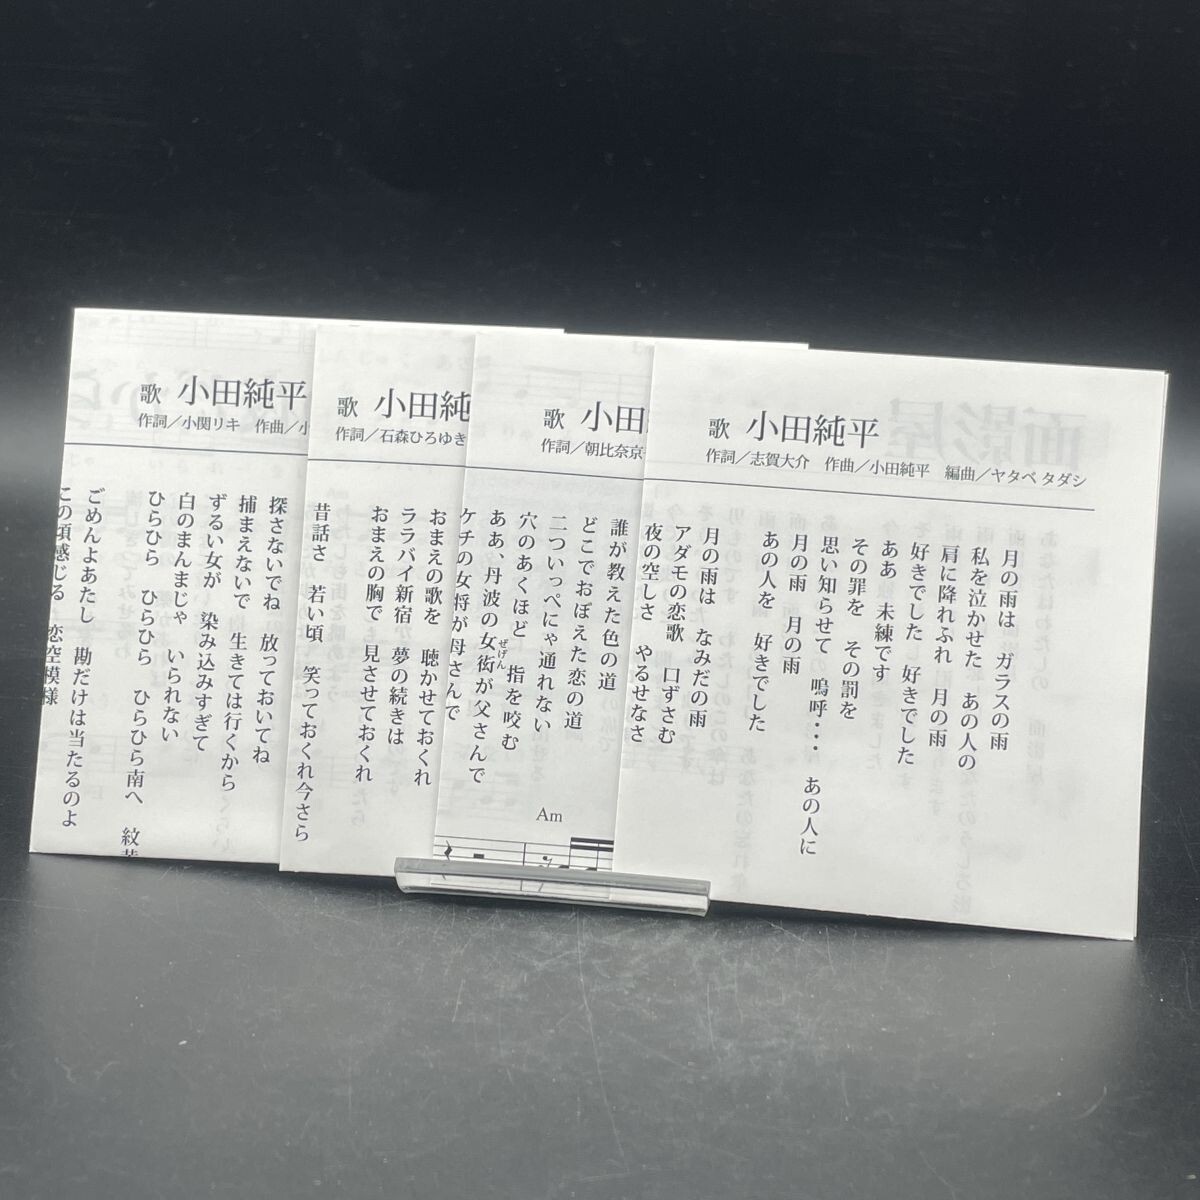 歌 小田純平
作詞／小関リキ 作曲／小
探さないでね 放っておいてね
捕まえないで 生きては行くから
ずるい女が 染み込みすぎて
白のまんまじゃ いられない
ひらひら ひらひら ひらひら南へ
ごめんよあたし 勘だけは当たるのよ
この頃感じる 恋空模様
歌 小田純
作詞／石森ひろゆき
おまえの歌を 聴かせておくれ
ララバイ新宿 夢の続きは
おまえの胸で 見させておくれ
昔話さ 若い頃 笑っておくれ今さら
歌 小田
作詞／朝比奈京
誰が教えた色の道
どこでおぼえた恋の道
二ついっぺにゃ通れない
穴のあくほど 指を咬む
ああ、丹波の女衒が父さんで
ぜげん
ケチの女将が母さんで
Am
歌 小田純平
作詞／志賀大介 作曲／小田純平 編曲／ヤタベ タダシ
月の雨は ガラスの雨
私を泣かせた あの人の
肩に降れふれ 月の雨
好きでした 好きでした
ああ 未練です
その罪を その罰を
思い知らせて 嗚呼・・・ あの人に
月の雨 月の雨
あの人を 好きでした
月の雨は なみだの雨
アダモの恋歌 口ずさむ
夜の空しさ やるせなさ